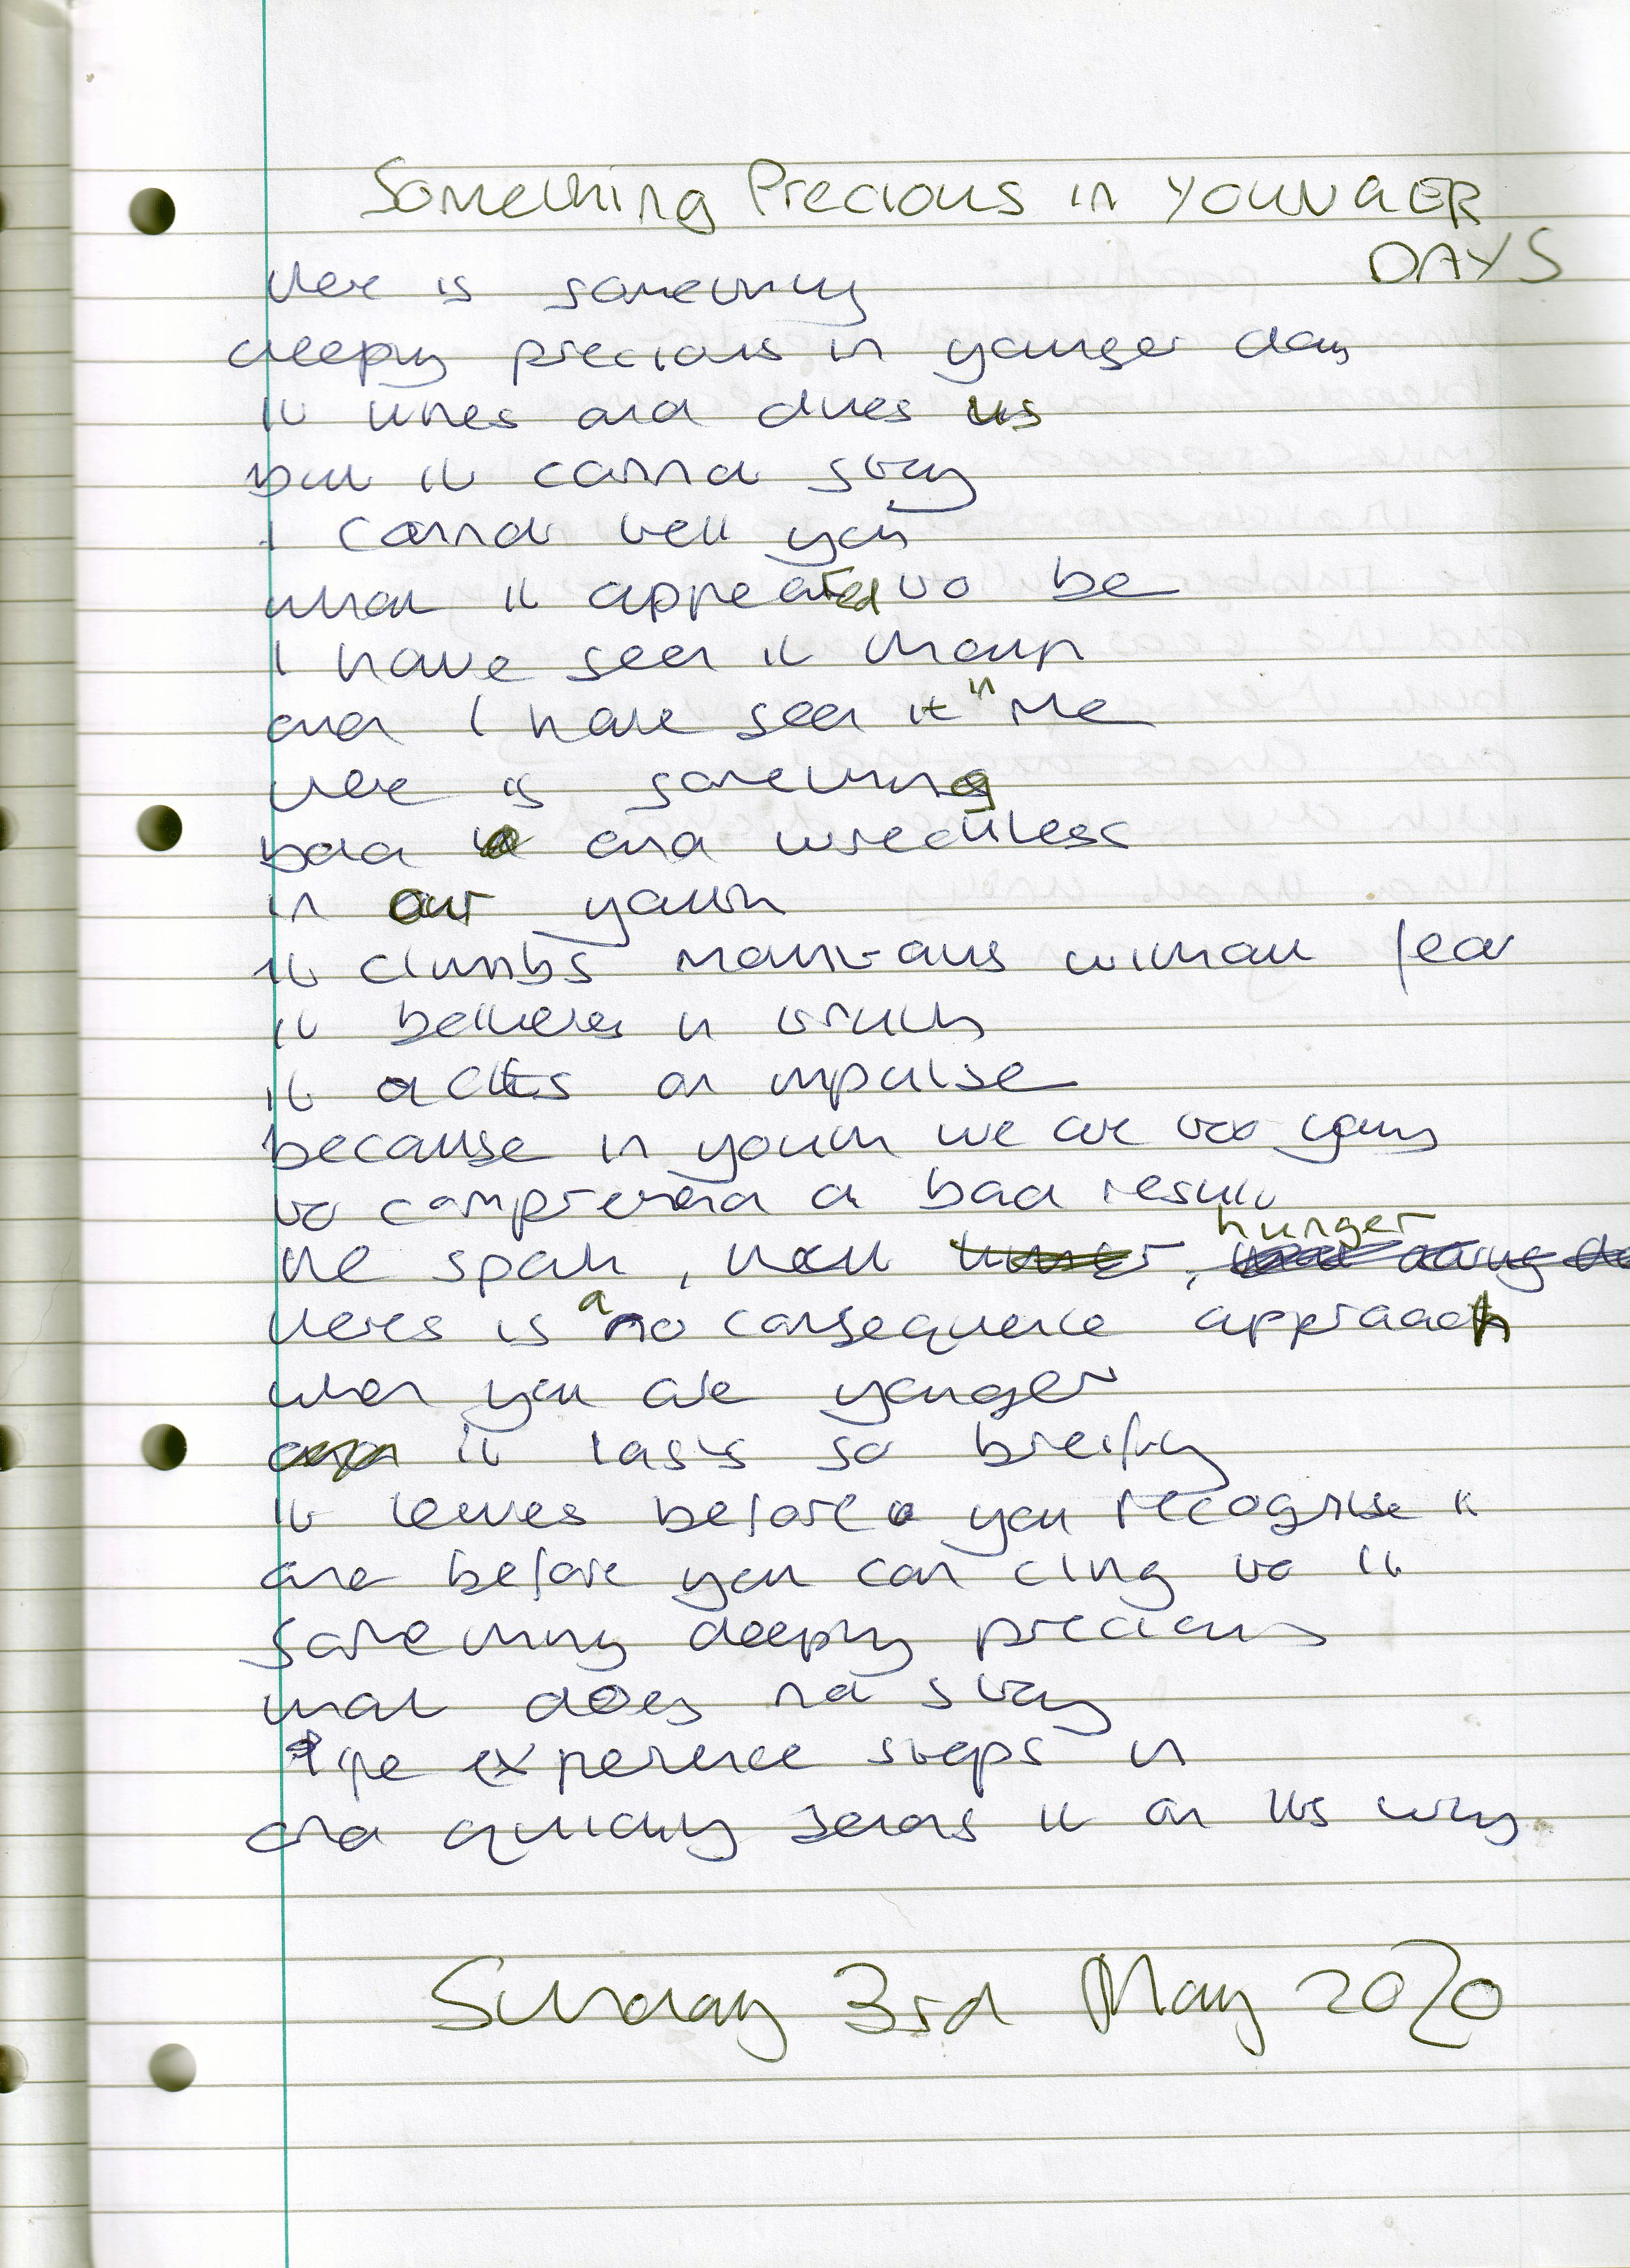 Something Precious in YOUNGER
DAYS
there is something
deeply precious in younger days
it lives and drives us
but it cannot stay
I cannot tell you
what it appeared to be
I have seen it though
and I have seen it in me
there is something
bold and wreckless
in our youth
it climbs mountains without fear
it believes in truth
it acts on impulse
because in youth we are too young
to comprehend a bad result
the spark, that hunger
theres is a no consequence approach
when you are younger
it lasts so breifly
it leaves before you recognise it
and before you can cling to it
something deeply precious
that does not stay
life experience steps in
and quickly sends it on its way.
Sunday 3rd May 2020